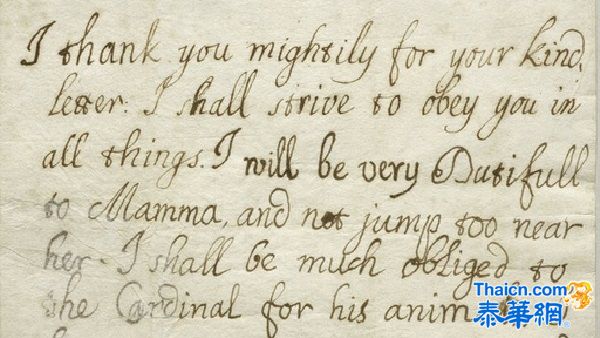 I thank you mightily for your kind
letter. I shall strive to obey you in
all things. I will be very Dutifull
to Mamma, and not jump too near
her. I shall be much obliged to
the Cardinal for his
Thaicn.com
泰華網